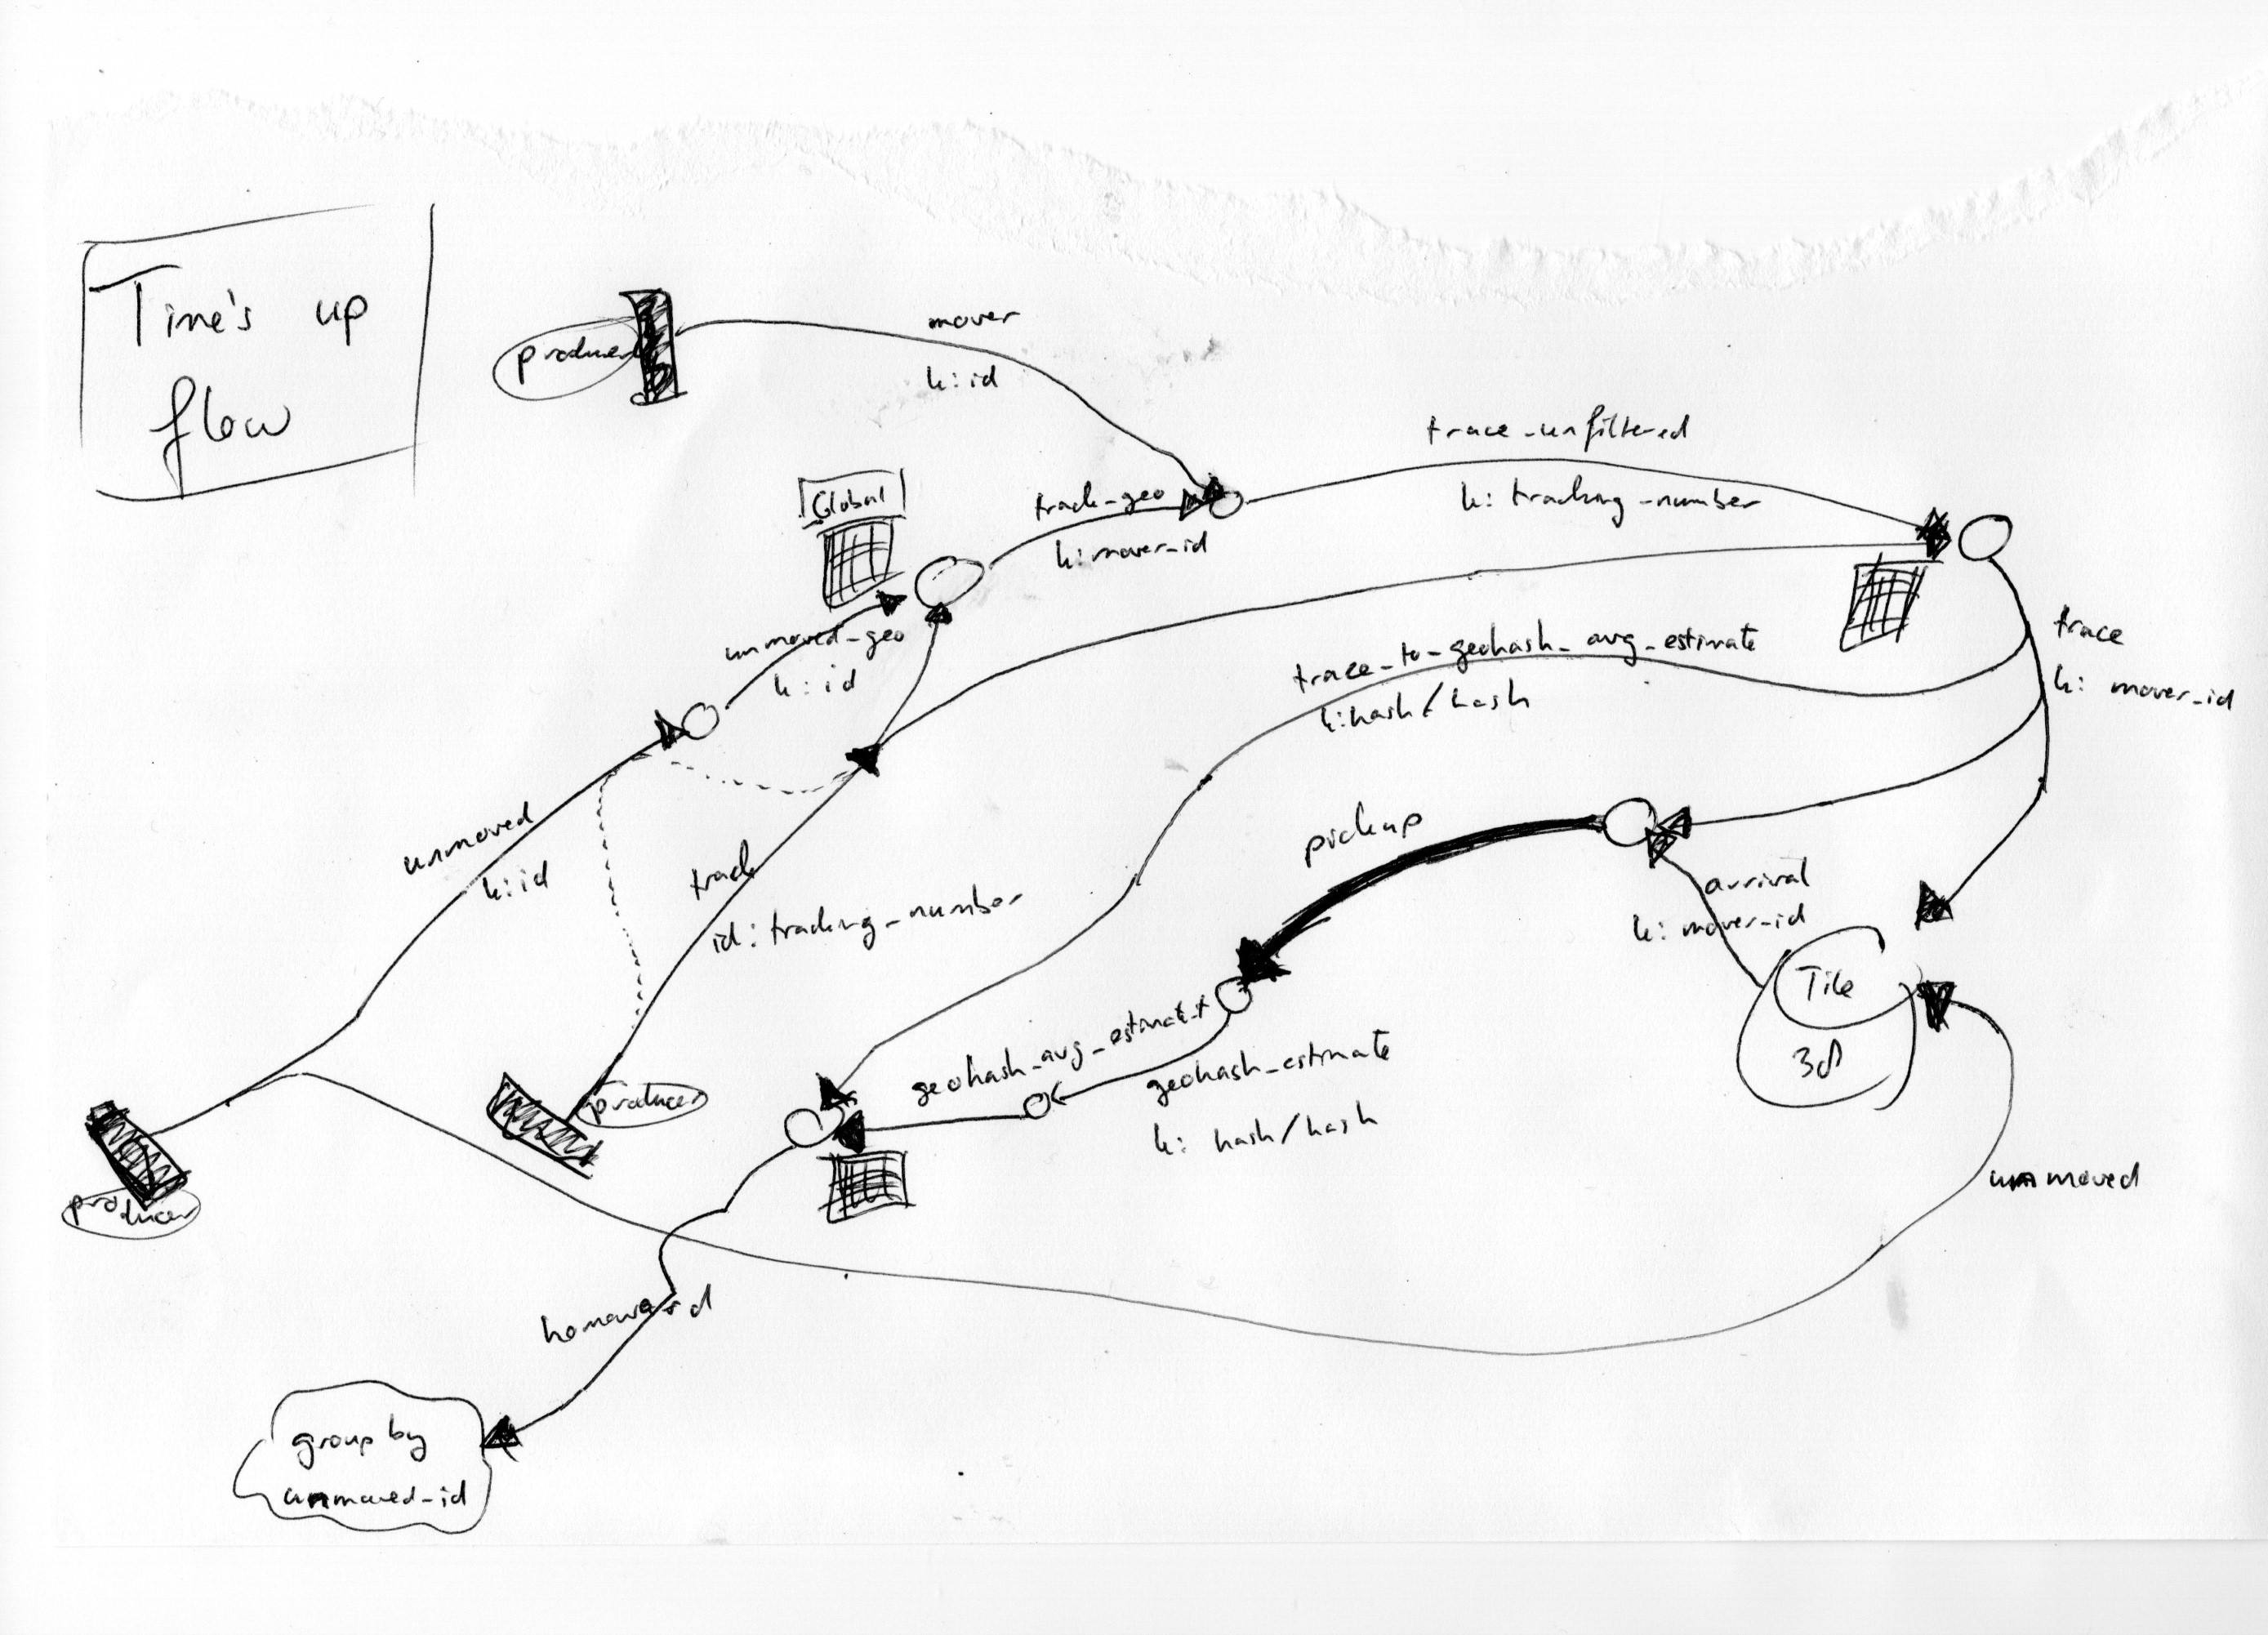 Time's up
flow
producer
mover
k: id
trace_unfiltered
k: tracking_number
Global
track_geo
k: mover_id
unmoved_geo
k: id
trace
k: mover_id
trace_to_geohash_avg_estimate
k: hash/hash
unmoved
k: id
track
id: tracking_number
pickup
arrival
k: mover_id
Tile
3d
geohash_avg_estimate
geohash_estimate
k: hash/hash
producer
producer
unmoved
group by
unmoved_id